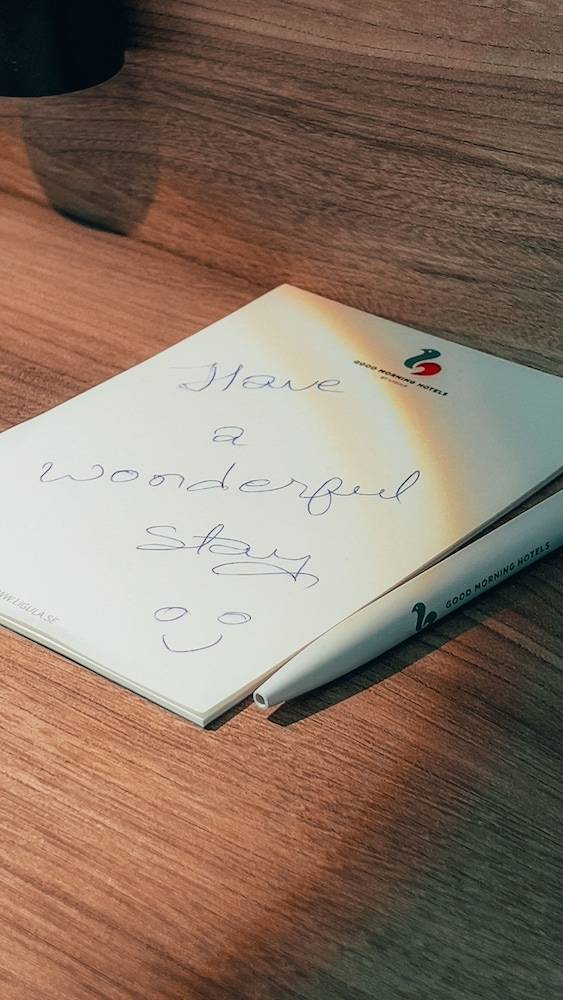 GOOD MORNING HOTELS
BY LIGULA
Have
a
woonderful
stay
WWW.LIGULA.SE
GOOD MORNING HOTELS